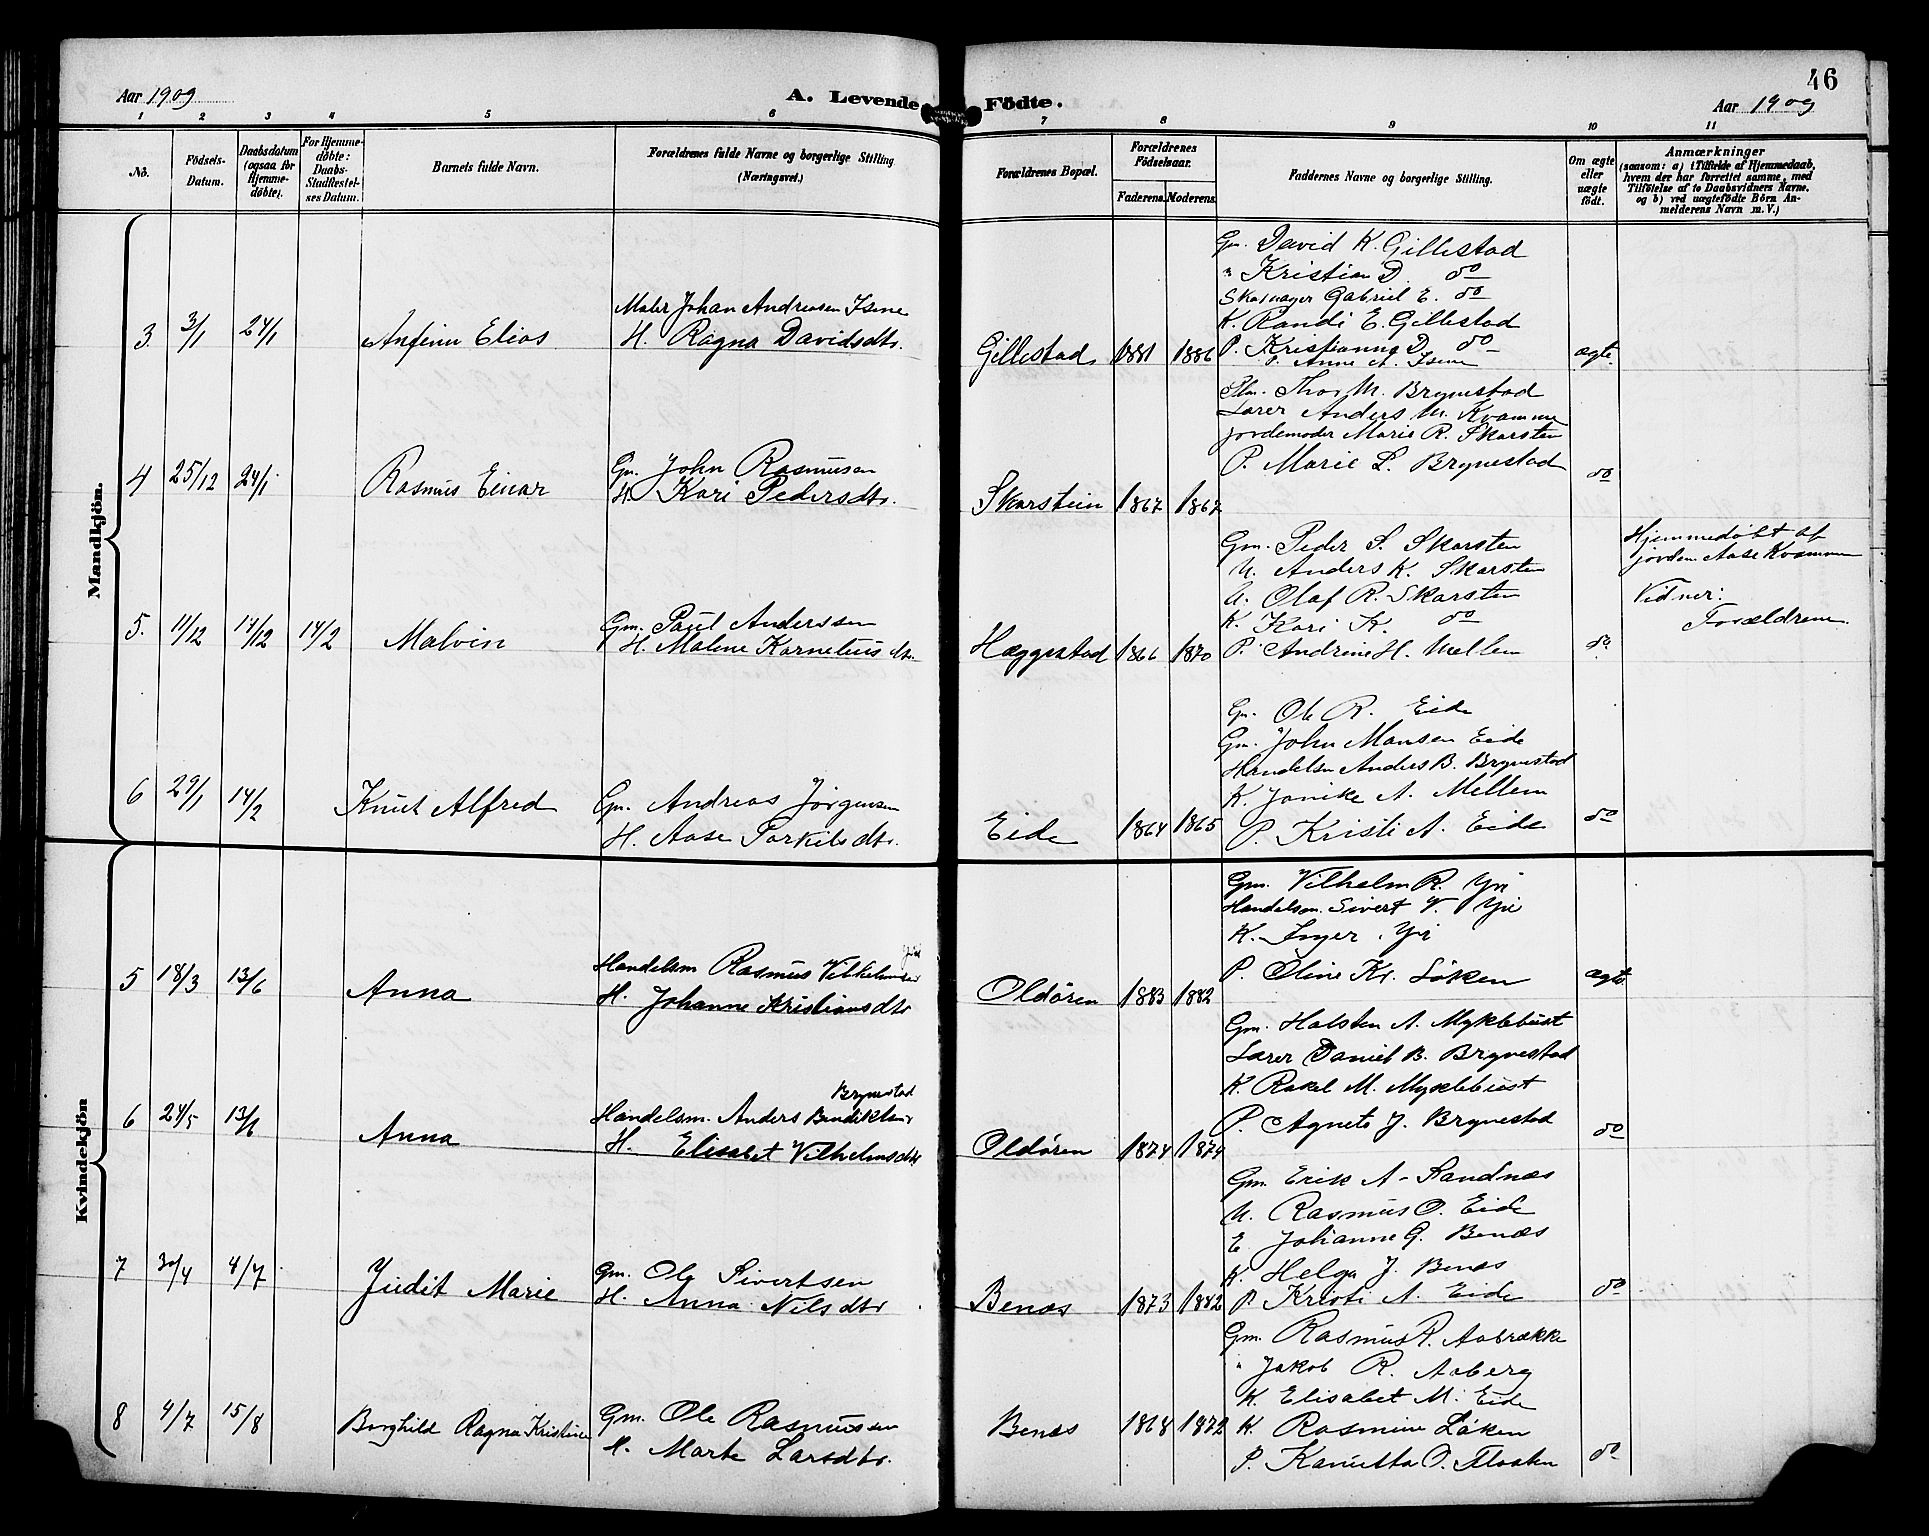 Aar 1909
A. Levende Födte.
46
Aar 1909
1 2 3 4 5 6 7 8 9 10 11
No.
Födsels-Datum.
Daabsdatum (ogsaa for Hjemme-döbte).
For Hjemme-döbte: Daabs-Stadfæstel-ses Datum.
Barnets fulde Navn.
Forældrenes fulde Navne og borgerlige Stilling (Næringsvei.)
Forældrenes Bopæl.
Forældrenes Födselsaar.
Faderens. Moderens.
Faddernes Navne og borgerlige Stilling.
Om ægte eller uægte födt.
Anmærkninger
(saasom: a) i Tilfælde af Hjemmedaab, hvem der har forrettet samme, med Tilföielse af to Daabsvidners Navne. og b) ved uægtefödte Börn An-melderens Navn m. V.)
Mandkjön.
Gm. David K. Gillestad
" Kristian D. do
Skomager Gabriel E. do
K. Randi E. Gillestad
P. Kristianna D. do
P. Anne A. Isene
3. 3/1 24/1 Anfinn Elias
Maler Johan Andreasen Isene
H. Ragna Davidsdtr.
Gillestad 1881 1886 ægte.
Thor M. Brynestad
Lærer Anders M. Kvamme
jordemoder Marie R. Skarsten
P. Marie L. Brynestad
4 25/12 24/1 Rasmus Einar
Gm. John Rasmusen
H. Kari Pedersdtr.
Skarstein 1867 1867 do
Gm. Peder S. Skarsten
U. Anders K. Skarsten
U. Olaf R. Skarsten
K. Kari K. do
P. Andrine H. Mellem
5. 11/12 14/12 14/2 Malvin
Gm. Paul Anderssen
H. Malene Kornelius dtr.
Hæggestad 1866 1870 do
Hjemmedöbt af
jordm. Aase Kvamme
Vidner:
Forældrene.
Gm. Ole R. Eide
Gm. John Monsen Eide
Handelsm Anders B. Brynestad
K. Jonike A. Mellem
P. Kristi A. Eide
6 29/1 14/2 Knut Alfred
Gm. Andreas Jørgensen
H. Aase Torkilsdtr.
Eide 1864 1865 do
Kvindekjön
Gm. Vilhelm R. Yri
Handelsm. Sivert V. Yri
K. Inger Yri
P. Oline Kr. Løken
5 18/3 13/6 Anna
Handelsm Rasmus Vilhelmsen Yri
H. Johanne Kristiansdtr
Oldøren 1883 1882 ægte.
Gm. Halsten A. Myklebust
Lærer Daniel B. Brynestad
K. Rakel M. Myklebust
P. Agnete J. Brynestad
6 24/5 13/6 Anna
Handelsm. Anders Bendiktsen Brynestad
H. Elisabet Vilhelmsdtr
Oldøren 1874 1874 do
Gm. Erik A. Sandnæs
U. Rasmus O. Eide
E Johanne G. Benæs
K. Helga J. Benæs
P. Kristi A. Eide
7 30/4 4/7 Judit Marie
Gm. Ole Sivertsen
H. Anna Nilsdtr.
Benæs 1873 1882 do
Gm. Rasmus R. Aabrække
" Jakob R. Aaberg
K. Elisabet M. Eide
K. Rasmine Løken
P. Kanutta O. Floaten
8 4/7 15/8 Borghild Ragna Kristine
Gm. Ole Rasmussen
H. Marte Larsdtr.
Benæs 1868 1872 do